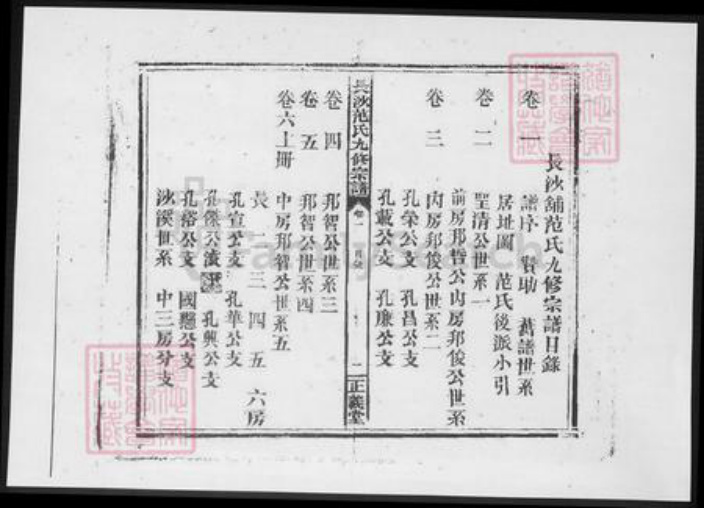 長沙舖范氏九修宗譜目錄
卷一 譜序 贊助 舊譜世系
居址圖 范氏後派小引
卷二 聖清公世系一
前房邦哲公內房邦俊公世系
卷三 內房邦俊公世系二
孔榮公支 孔昌公支
孔載公支 孔廉公支
長沙范氏九修宗譜 卷一 目錄 一 正義堂
卷四 邦智公世系三
卷五 邦智公世系四
卷六上冊 中房邦智公世系五
長 二 三 四 五 六房
孔宣公支 孔華公支
孔傑公 孔興公支
孔 公支 國懸公支
沙溪世系 中三房分支